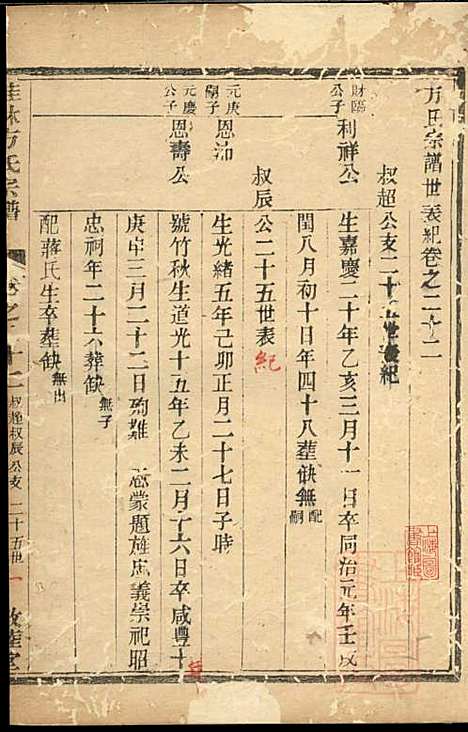 方氏宗譜世表紀卷之二十二
叔超公支二十五世表紀
財臨公子
利祥公
生嘉慶二十年乙亥三月十一日卒同治元年壬戌
閏八月初十日年四十八葬缺無配嗣
叔辰公二十五世表紀
元庚嗣子
恩沛
生光緒五年己卯正月二十七日子時
元慶公子
恩壽公
號竹秋生道光十五年乙未二月十六日卒咸豐十年
庚申三月二十二日殉難 恩蒙題旌忠義崇祀昭
忠祠年二十六葬缺無子
配蔣氏生卒葬缺無出
桂林方氏宗譜
卷之二十二
叔超叔辰公支二十五世
一
敦薩堂
上海圖書館藏